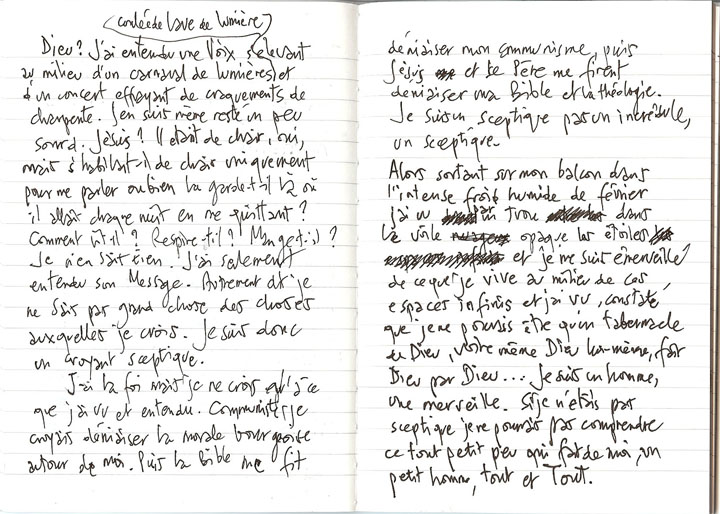 (coulée de lave de lumière)
Dieu? J'ai entendu une Voix s'élevant
au milieu d'un carnaval de lumières et
d'un concert effrayant de craquements de
charpente. J'en suis même resté un peu
sourd. Jésus? Il était de chair, oui,
mais s'habillait-il de chair uniquement
pour me parler ou bien la garde-t-il là où
il allait chaque nuit en me quittant?
Comment vit-il? Respire-t-il? Mange-t-il?
Je n'en sais rien. J'ai seulement
entendu son Message. Autrement dit je
ne sais pas grand chose des choses
auxquelles je crois. Je suis donc
un croyant sceptique.
J'ai la foi mais je ne crois qu'à ce
que j'ai vu et entendu. Communiste je
croyais déniaiser la morale bourgeoise
autour de moi. Puis la Bible me fit
déniaiser mon communisme, puis
Jésus et le Père me firent
déniaiser ma Bible et la théologie.
Je suis un sceptique pas un incrédule,
un sceptique.
Alors sortant sur mon balcon dans
l'intense froid humide de février
j'ai vu par un trou dans
le voile opaque les étoiles
et je me suis émerveillé
de ce que je vive au milieu de ces
espaces infinis et j'ai vu, constaté
que je ne pouvais être qu'un tabernacle
de Dieu, voire même Dieu lui-même, fait
Dieu par Dieu... Je suis un homme,
une merveille. Si je n'étais pas
sceptique je ne pourrais pas comprendre
ce tout petit peu qui fait de moi, un
petit homme, tout et Tout.